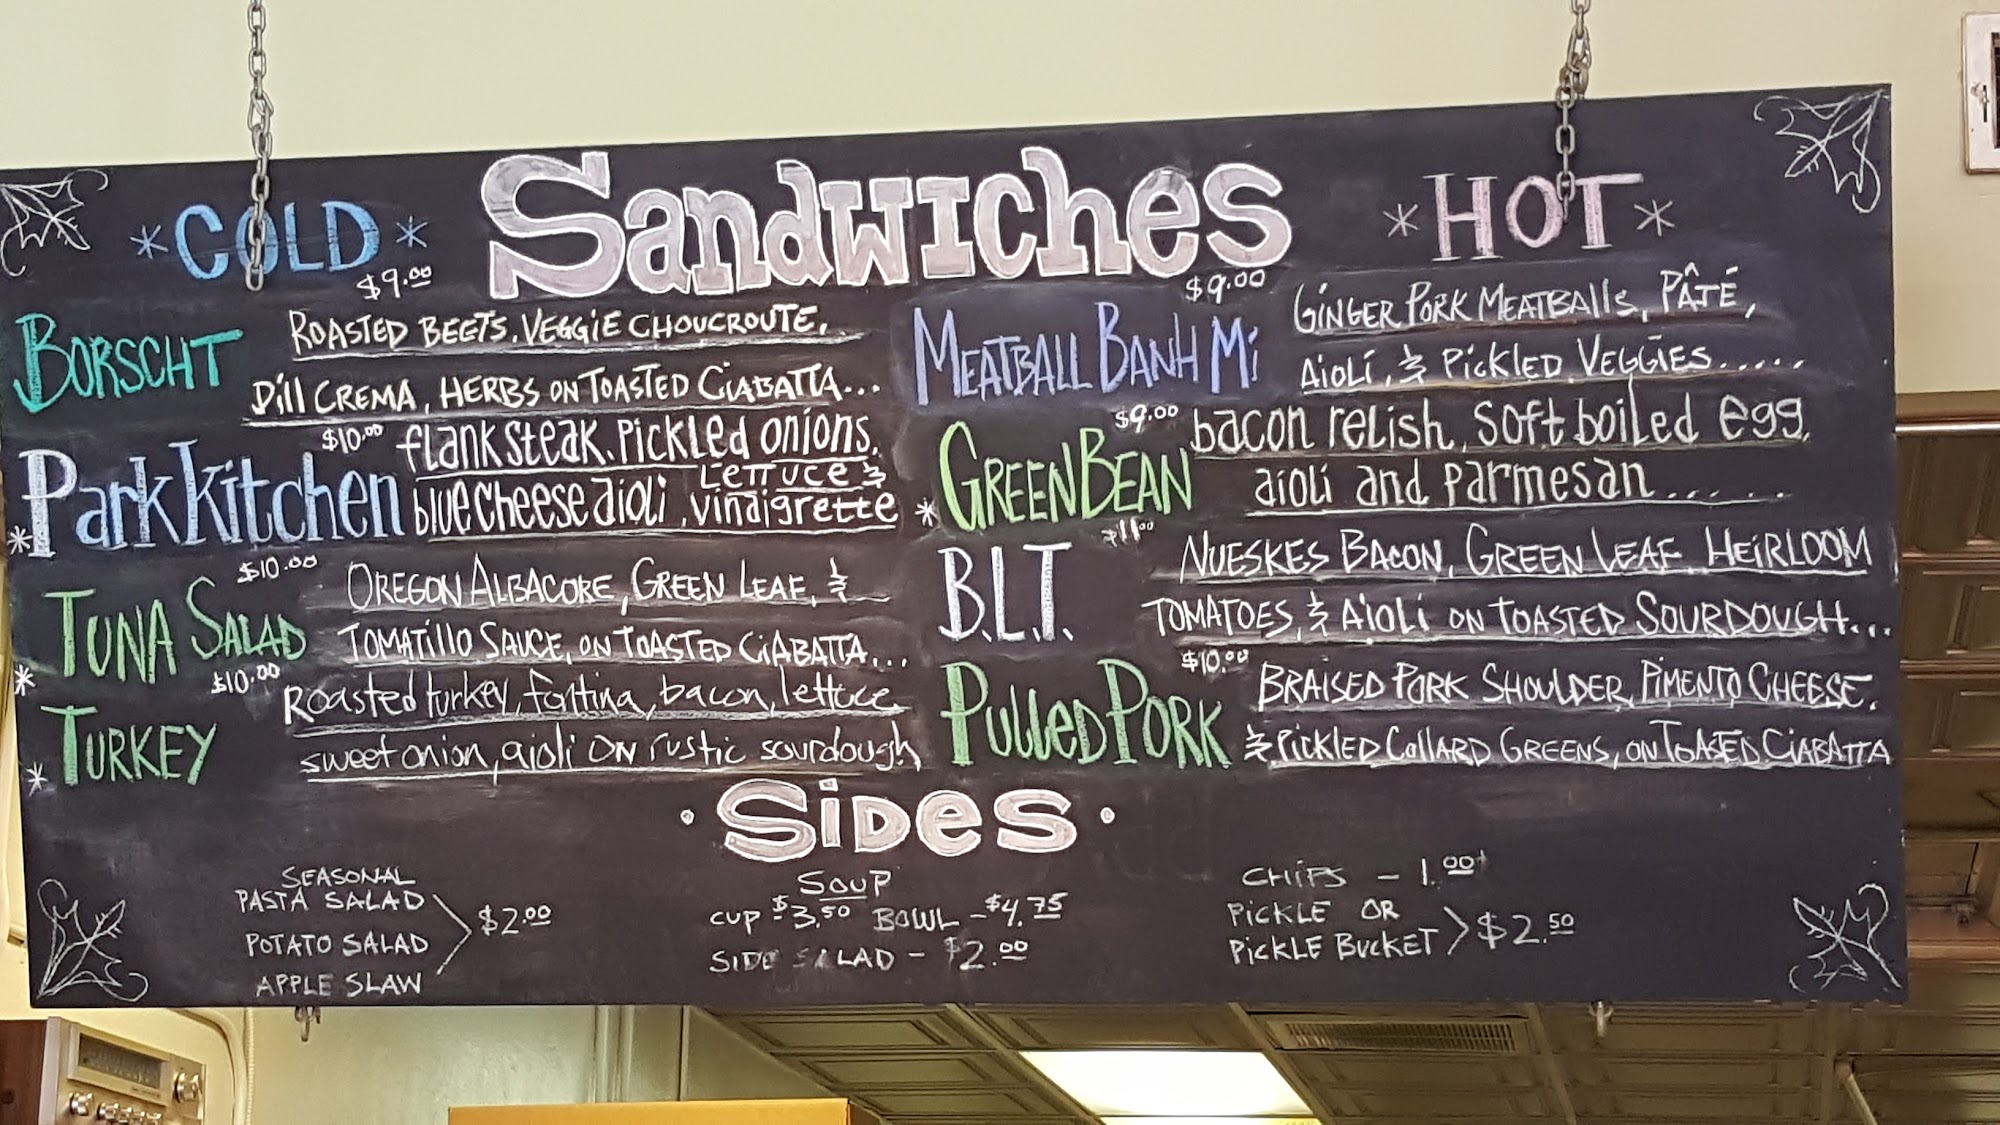 Sandwiches
*COLD*
$9.00
BORSCHT
ROASTED BEETS, VEGGIE CHOUCROUTE,
DILL CREMA, HERBS ON TOASTED CIABATTA...
$10.00
*Park Kitchen
flank steak, pickled onions,
LETTUCE &
blue cheese aioli, vinaigrette
$10.00
TUNA SALAD
OREGON ALBACORE, GREEN LEAF, &
TOMATILLO SAUCE, ON TOASTED CIABATTA...
*
$10.00
*TURKEY
Roasted turkey, fontina, bacon, lettuce
sweet onion, aioli ON rustic sourdough
*HOT*
$9.00
MEATBALL BANH Mi
GINGER PORK MEATBALLS, PÂTÉ,
AIOLI, & PICKLED VEGGIES.....
$9.00
*GREEN BEAN
bacon relish, soft boiled egg,
aioli and parmesan......
$11.00
B.L.T.
NUESKES BACON, GREEN LEAF, HEIRLOOM
TOMATOES, & AIOLI ON TOASTED SOURDOUGH...
$10.00
PULLED PORK
BRAISED PORK SHOULDER, PIMENTO CHEESE,
& PICKLED COLLARD GREENS, ON TOASTED CIABATTA
• SIDES •
SEASONAL
PASTA SALAD
POTATO SALAD
APPLE SLAW
$2.00
SOUP
CUP $3.50 BOWL - $4.75
SIDE SALAD - $2.00
CHIPS - 1.00+
PICKLE OR
PICKLE BUCKET > $2.50